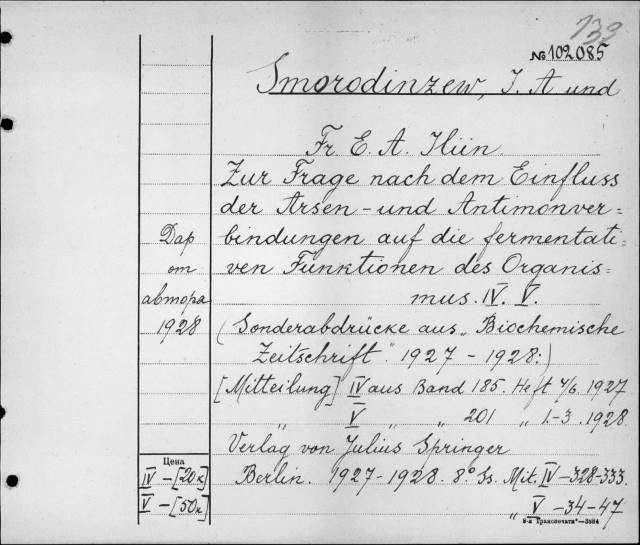 132
№ 102085
Smorodinzew, I. A und
Fr. E. A. Iliin.
Zur Frage nach dem Einfluss
der Arsen- und Antimonver=
bindungen auf die fermentati=
ven Funktionen des Organis=
mus. IV. V.
(Sonderabdrücke aus „Biochemische
Zeitschrift." 1927 - 1928:)
[Mitteilung] IV aus Band 185. Heft 4/6. 1927
„ V „ „ 201 „ 1.-3. 1928.
Verlag von Julius Springer
Berlin. 1927-1928. 8° Ss. Mit. IV-328-333.
„ V -34-47
Дар
от
автора
1928
Цена
IV - [20к]
V - [50к]
9-я Транспечати"—3584